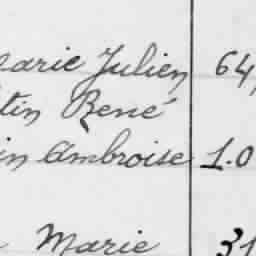 arie Julien 64,
tin René
in Ambroise 1.0
Marie 31